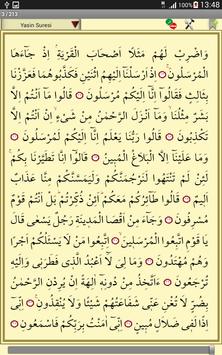 13:48
3 / 213
Yasin Suresi
وَاضْرِبْ لَهُمْ مَثَلًا اَصْحَابَ الْقَرْيَةِ اِذْ جَٓاءَهَا
الْمُرْسَلُونَ ۞ اِذْ اَرْسَلْنَٓا اِلَيْهِمُ اثْنَيْنِ فَكَذَّبُوهُمَا فَعَزَّزْنَا
بِثَالِثٍ فَقَالُٓوا اِنَّٓا اِلَيْكُمْ مُرْسَلُونَ ۞ قَالُوا مَٓا اَنْتُمْ اِلَّا
بَشَرٌ مِثْلُنَا وَمَٓا اَنْزَلَ الرَّحْمٰنُ مِنْ شَيْءٍ اِنْ اَنْتُمْ اِلَّا
تَكْذِبُونَ ۞ قَالُوا رَبُّنَا يَعْلَمُ اِنَّٓا اِلَيْكُمْ لَمُرْسَلُونَ ۞
وَمَا عَلَيْنَٓا اِلَّا الْبَلَاغُ الْمُبِينُ ۞ قَالُٓوا اِنَّا تَطَيَّرْنَا بِكُمْ
لَئِنْ لَمْ تَنْتَهُوا لَنَرْجُمَنَّكُمْ وَلَيَمَسَّنَّكُمْ مِنَّا عَذَابٌ
اَلِيمٌ ۞ قَالُوا طَٓائِرُكُمْ مَعَكُمْ اَئِنْ ذُكِّرْتُمْ بَلْ اَنْتُمْ قَوْمٌ
مُسْرِفُونَ ۞ وَجَٓاءَ مِنْ اَقْصَا الْمَدِينَةِ رَجُلٌ يَسْعٰى قَالَ
يَا قَوْمِ اتَّبِعُوا الْمُرْسَلِينَ ۞ اِتَّبِعُوا مَنْ لَا يَسْـَٔلُكُمْ اَجْرًا
وَهُمْ مُهْتَدُونَ ۞ وَمَا لِيَ لَٓا اَعْبُدُ الَّذِي فَطَرَنِي وَاِلَيْهِ
تُرْجَعُونَ ۞ ءَاَتَّخِذُ مِنْ دُونِهٖٓ اٰلِهَةً اِنْ يُرِدْنِ الرَّحْمٰنُ
بِضُرٍّ لَا تُغْنِ عَنِّي شَفَاعَتُهُمْ شَيْـًٔا وَلَا يُنْقِذُونِ ۞ اِنِّٓي
اِذًا لَفِي ضَلَالٍ مُبِينٍ ۞ اِنِّٓي اٰمَنْتُ بِرَبِّكُمْ فَاسْمَعُونِ ۞